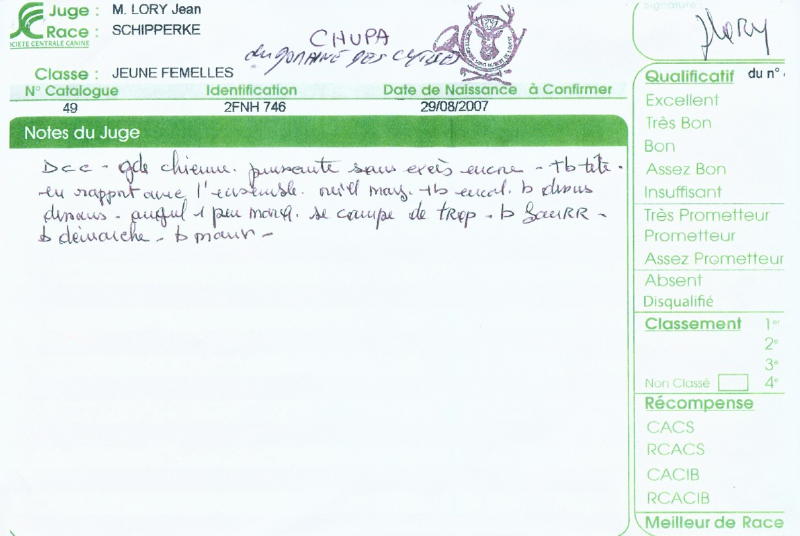 Juge : M. LORY Jean
Race : SCHIPPERKE
SOCIETE CENTRALE CANINE
CHUPA
du DOMAINE DES
Classe : JEUNE FEMELLES
N° Catalogue Identification Date de Naissance à Confirmer
49 2FNH 746 29/08/2007
Notes du Juge
Dcc - gde chienne. puissante sans excès encore - tb tête -
en rapport avec l'ensemble. tb encol. b dessus
dessous - 1 peu se campe de trop - b
b démarche - b
signature
Lory
Qualificatif du n°
Excellent
Très Bon
Bon
Assez Bon
Insuffisant
Très Prometteur
Prometteur
Assez Prometteur
Absent
Disqualifié
Classement 1er
2e
3e
Non Classé 4e
Récompense
CACS
RCACS
CACIB
RCACIB
Meilleur de Race